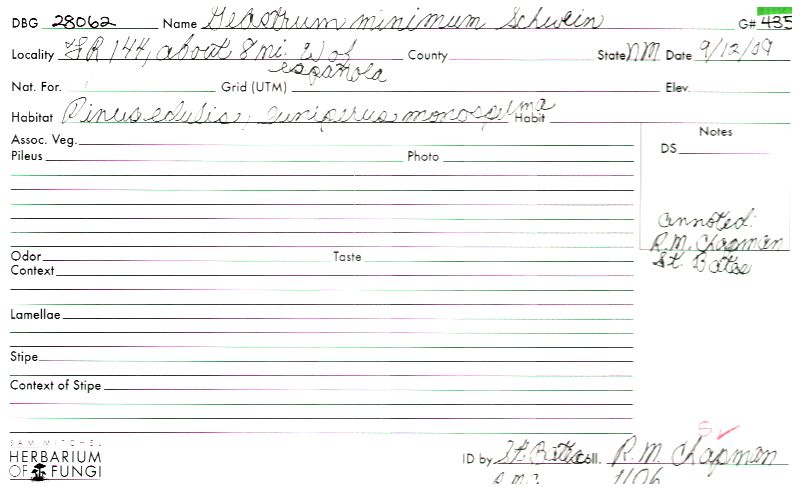 DBG 28062 Name Geastrum minimum Schwein G# 435
Locality FR 144, about 8 mi. W of española County State NM Date 9/12/09
Nat. For. Grid (UTM) Elev.
Habitat Pinus edulis, Juniperus monosperma Habit
Assoc. Veg. Notes
Pileus Photo DS
annoted:
R.M. Chapman
St. Bates
Odor Taste
Context
Lamellae
Stipe
Context of Stipe
SAM MITCHEL
HERBARIUM
OF FUNGI
ID by St. Bates Coll. R.M. Chapman
R.M.C. 1106